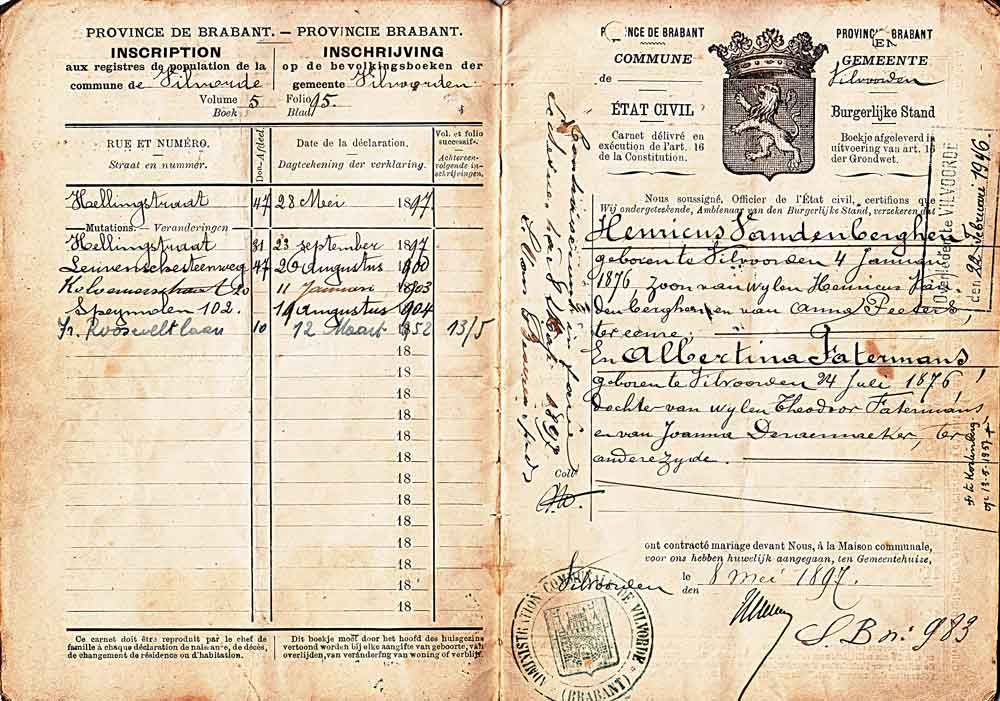 PROVINCE DE BRABANT. — PROVINCIE BRABANT.
INSCRIPTION
aux registres de population de la
commune de Vilvorde
Volume 5 Folio 15.
Boek Blad
INSCHRIJVING
op de bevolkingsboeken der
gemeente Vilvoorden
RUE ET NUMÉRO.
Straat en nummer.
Date de la déclaration.
Dagteekening der verklaring.
Vol. et folio
successifs.
Achtereen-
volgende in-
schrijvingen.
Hellingstraat 47 28 Mei 1897
Mutations. — Veranderingen
Hellingstraat 81 23 september 1897
Leuvenschesteenweg 47 20 Augustus 1900
20 11 Januari 1903
Speymolen 102. 19 Augustus 1904
Fr. Rooseveltlaan 10 12 Maart 1952 13/5
18
18
18
18
18
18
18
18
18
18
18
18
18
Ce carnet doit être reproduit par le chef de
famille à chaque déclaration de naissance, de décès,
de changement de résidence ou d'habitation.
Dit boekje moet door het hoofd des huisgezins
vertoond worden bij elke aangifte van geboorte, van
overlijden, van verandering van woning of verblijf.
PROVINCE DE BRABANT
COMMUNE
de
ÉTAT CIVIL
Carnet délivré en
exécution de l'art. 16
de la Constitution.
PROVINCIE BRABANT
EN
GEMEENTE
Vilvoorden
Burgerlijke Stand
Boekje afgeleverd in
uitvoering van art. 16
der Grondwet.
Nous soussigné, Officier de l'État civil, certifions que
Wij ondergeteekende, Ambtenaar van den Burgerlijke Stand, verzekeren dat
Henricus Vandenberghen
geboren te Vilvoorden 4 Januari
1876, zoon van wylen Henricus Van
denberghen en van Anna Peeters
ter eene.
En Albertina Fatermans
geboren te Vilvoorden 24 Juli 1876
dochter van wylen Theodoor Fatermans
en van Joanna Deraemaeker, ter
andere zyde.
ont contracté mariage devant Nous, à la Maison communale,
voor ons hebben huwelijk aangegaan, ten Gemeentehuize,
Vilvoorden le 8 Mei 1897.
den
S. B. no: 983
8 1897
Coll
Overleden te VILVOORDE
den 22 Februari 1946
op 13-5-1957
ADMINISTRATION COMMUNALE DE VILVORDE
(BRABANT)